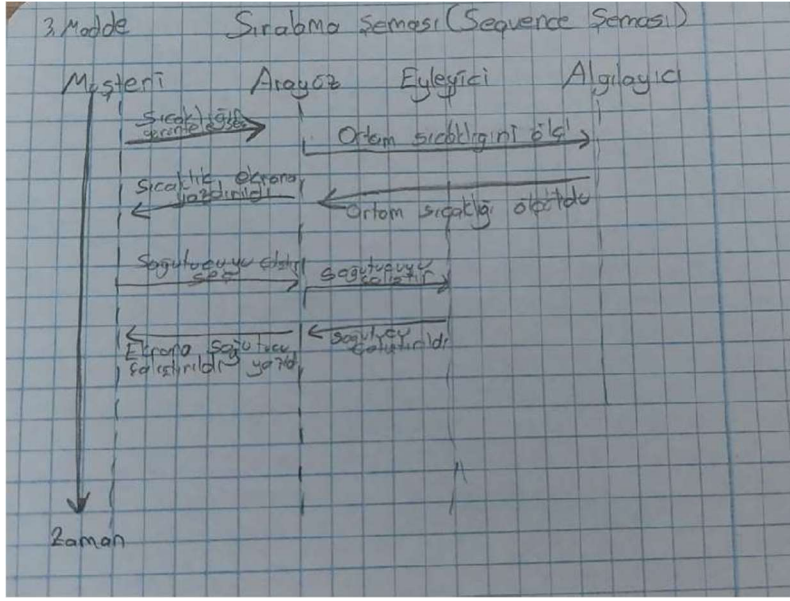 3. Madde Sıralama Şeması (Sequence Şeması)
Müşteri Arayüz Eyleyici Algılayıcı
Sıcaklığı
görüntüle seç
Ortam sıcaklığını ölç
Sıcaklık ekrana
yazdırıldı
Ortam sıcaklığı ölçüldü
Soğutucuyu çalıştır
seç
Soğutucuyu
çalıştır
Soğutucu
çalıştırıldı
Ekrana soğutucu
çalıştırıldı yazıldı
Zaman